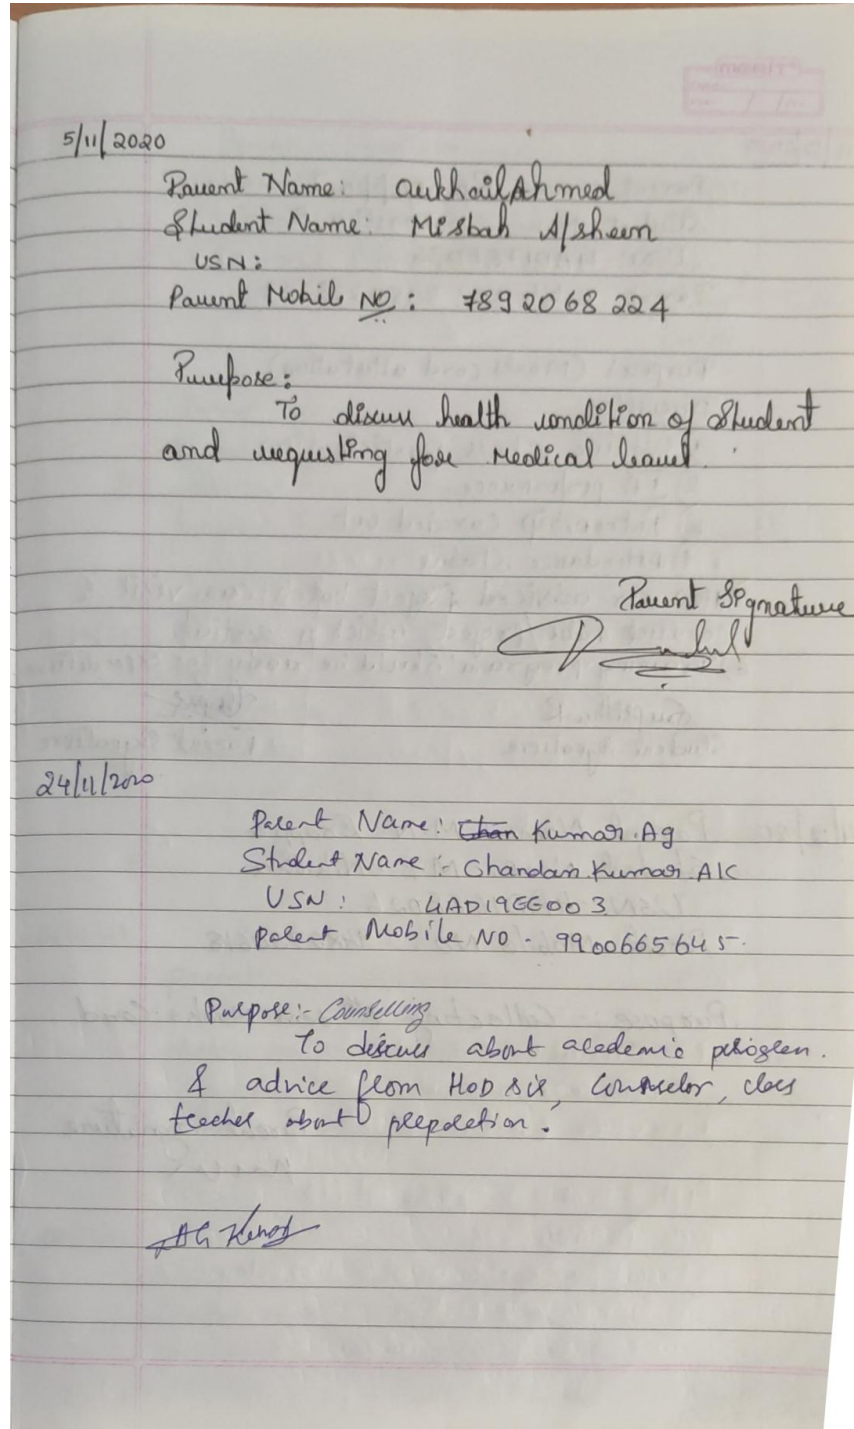 5/11/2020
Parent Name: aukhailAhmed
Student Name: Misbah Afsheen
USN:
Parent Mobil NO: 7892068224
Purpose:
To discuss health condition of Student
and requisting for Medical leave.
Parent Signature
24/11/2020
Parent Name: Kumar.Ag
Student Name:- Chandan Kumar AK
USN: 4AD19EE003
Parent Mobile NO- 9900665645.
Purpose:- Counselling
To discuss about academic progress.
& advice from HOD sir, Counselor, class
teacher about preparation.